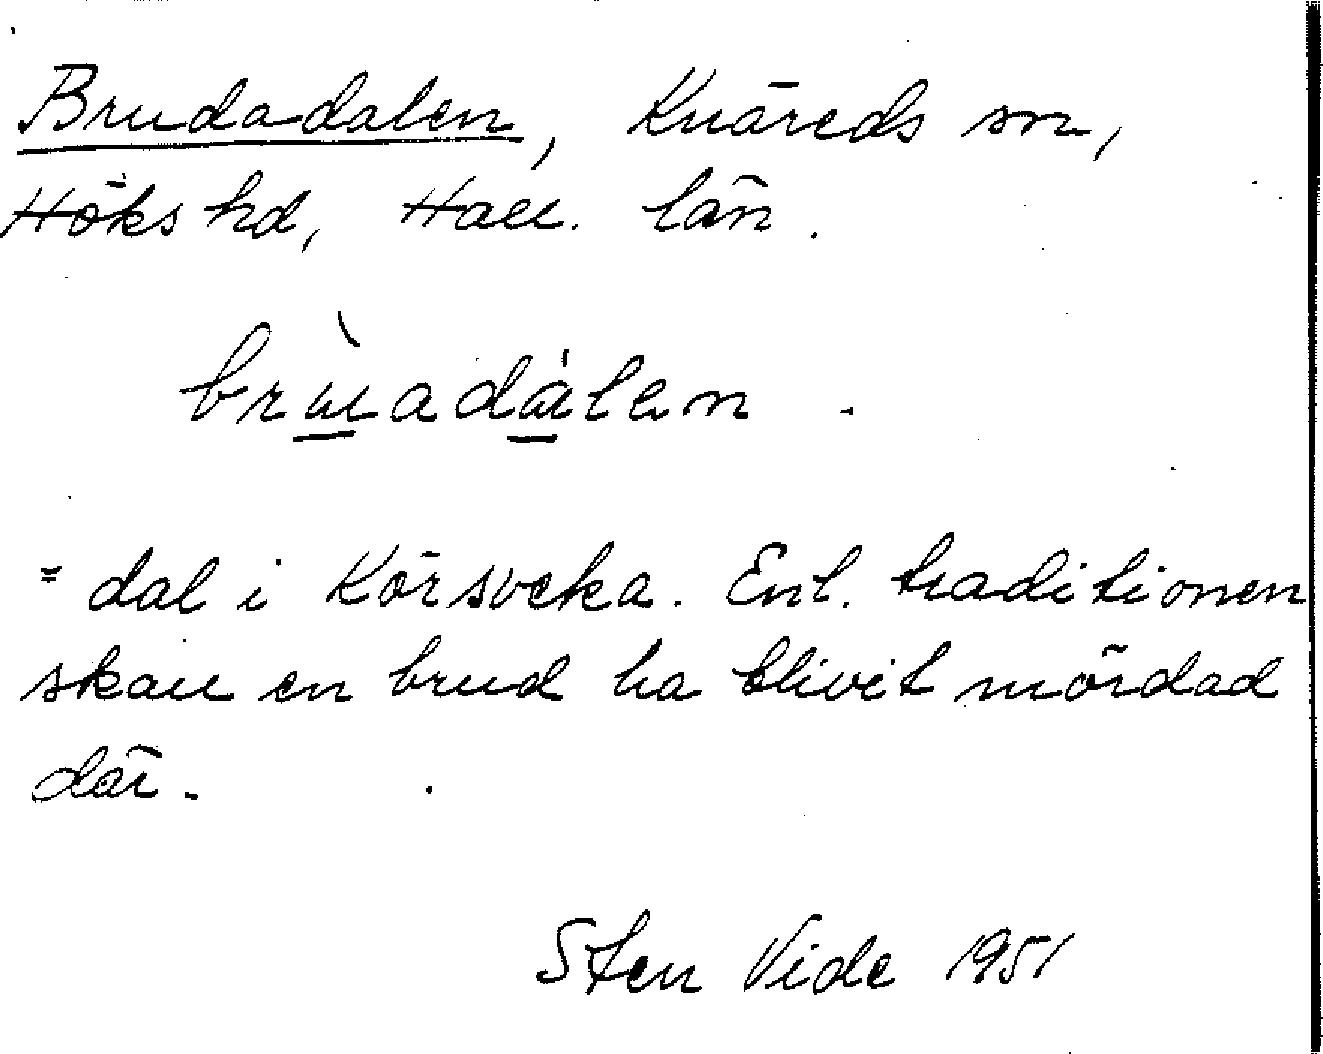 Brudadalen, Knäreds sn,
Höks hd, Hall. län.
brùadálen.
= dal i Körsveka. Enl. traditionen
skall en brud ha blivit mördad
där.
Sten Vide 1951